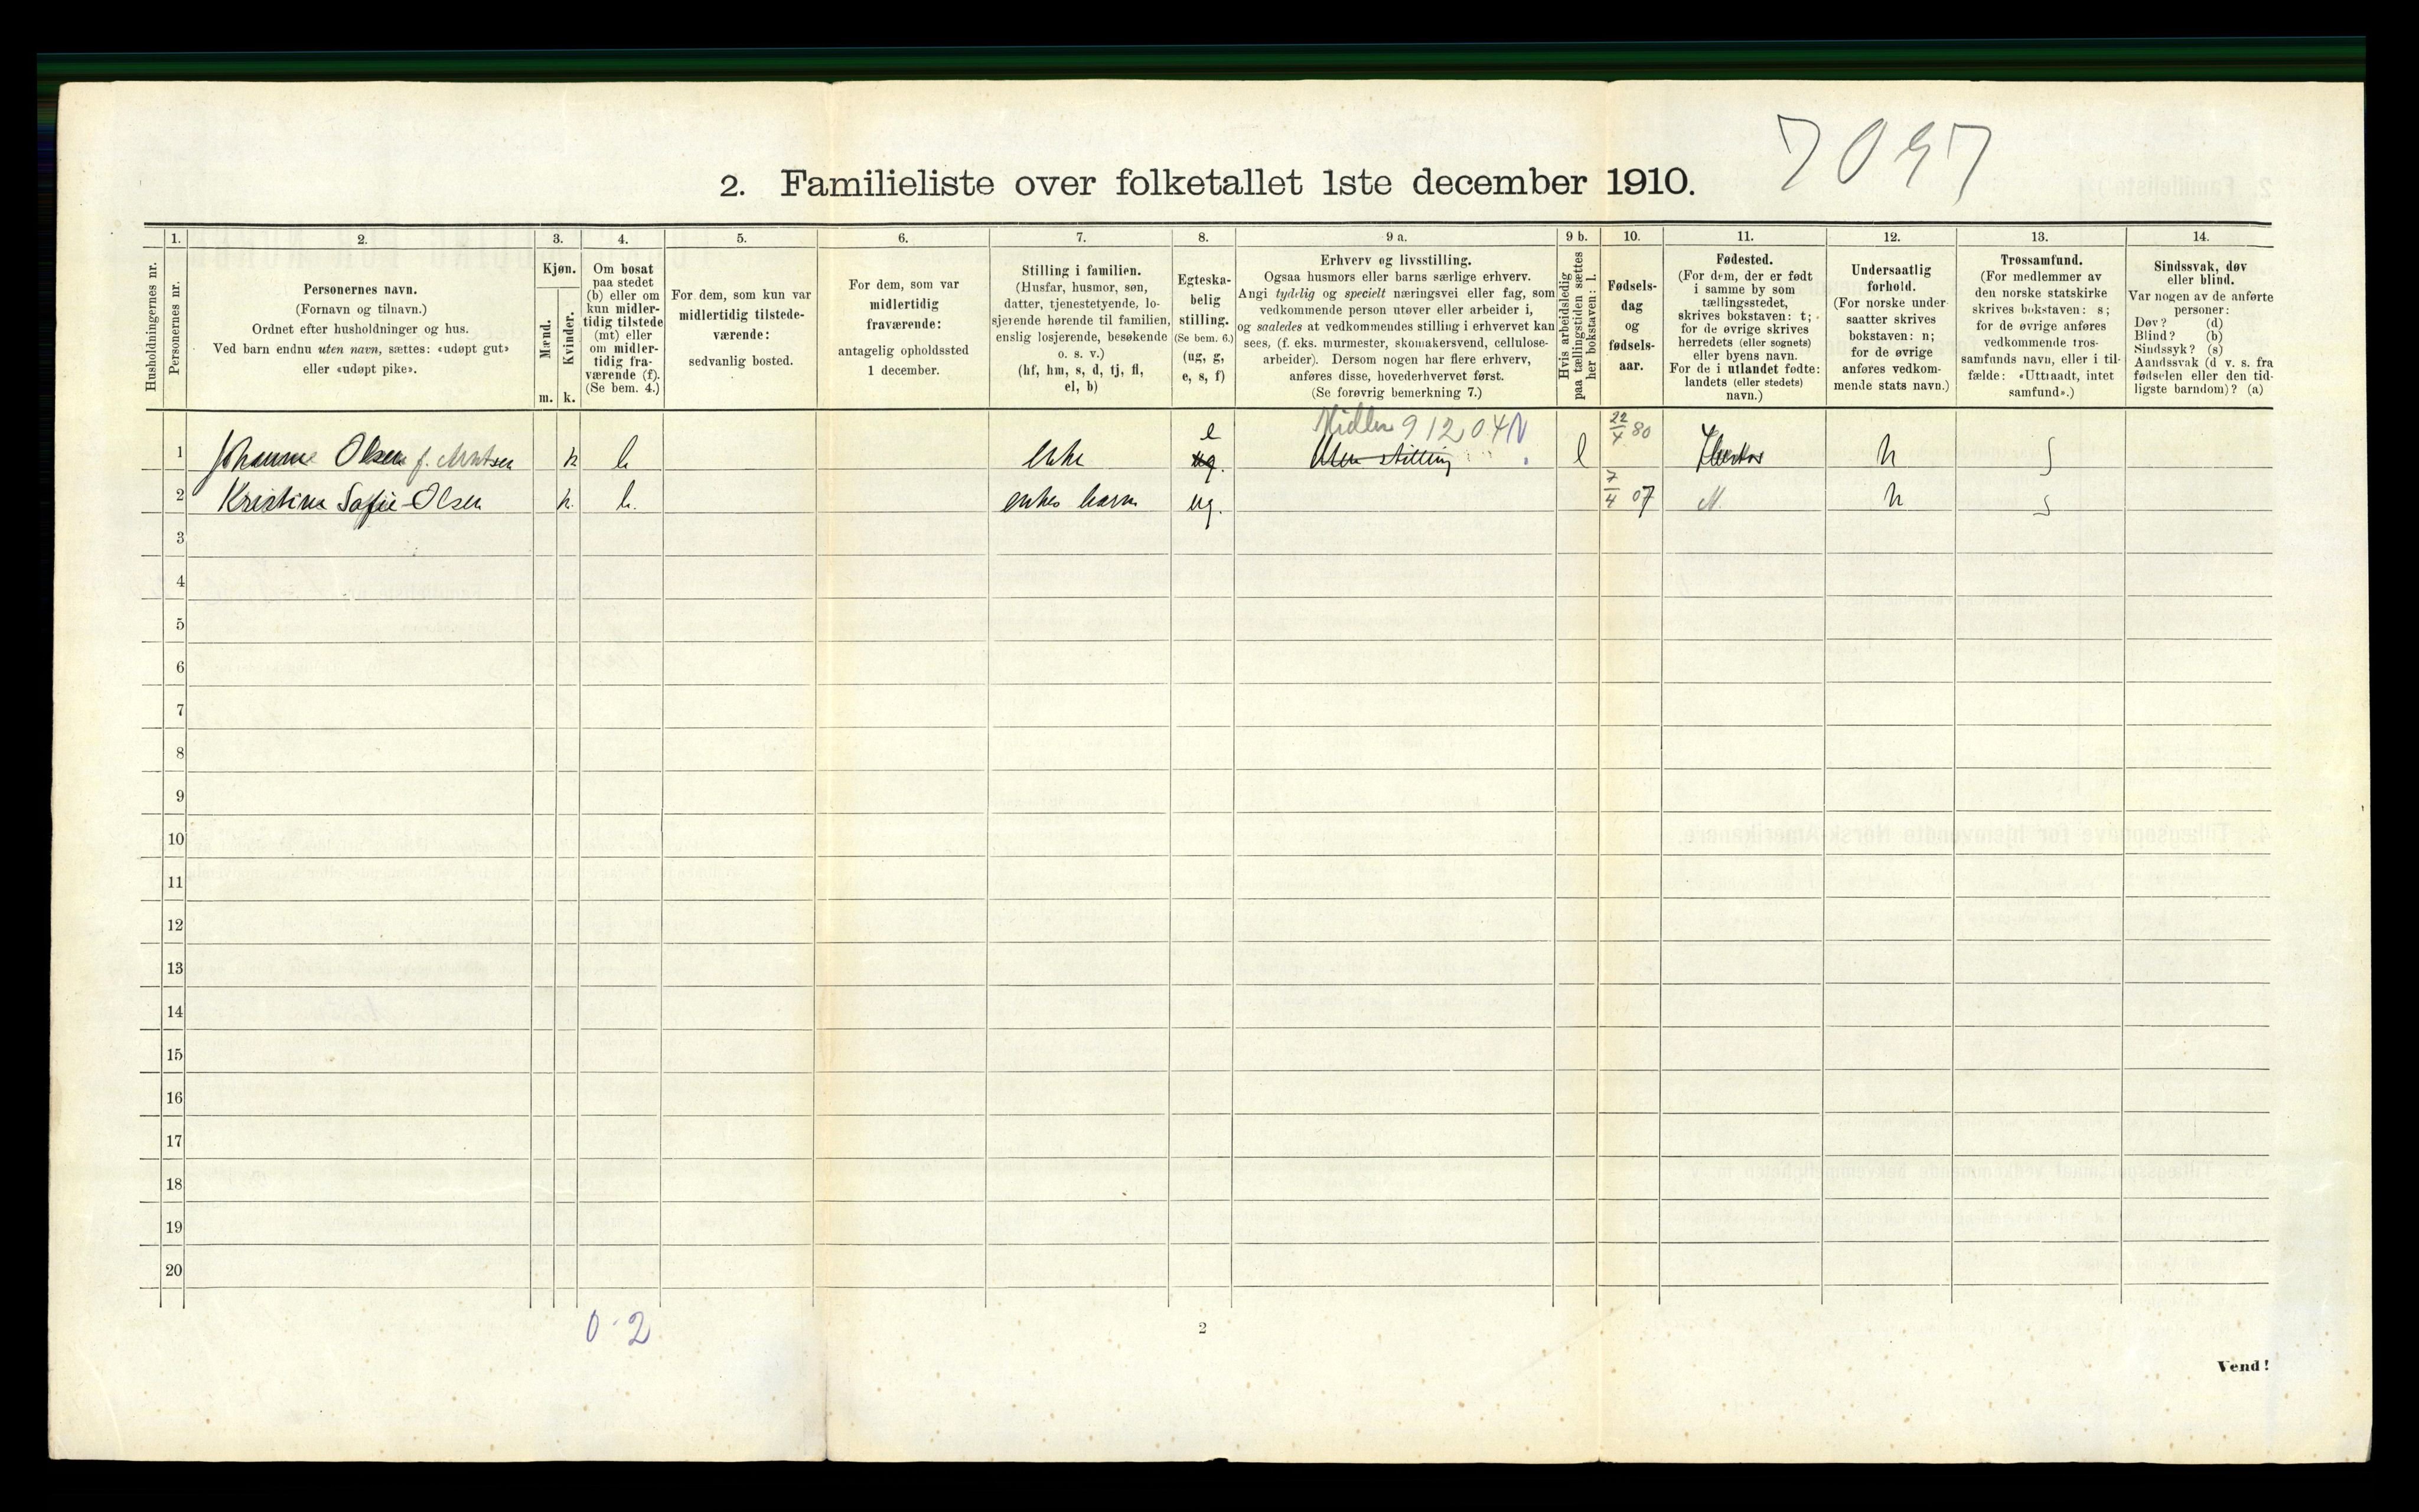 7097
2. Familieliste over folketallet 1ste december 1910.
Husholdningernes nr.
1.
Personernes nr.
2.
Personernes navn.
(Fornavn og tilnavn.)
Ordnet efter husholdninger og hus.
Ved barn endnu uten navn, sættes: «udøpt gut»
eller «udøpt pike».
3.
Kjøn.
Mænd.
Kvinder.
m. k.
4.
Om bosat
paa stedet
(b) eller om
kun midler-
tidig tilstede
(mt) eller
om midler-
tidig fra-
værende (f).
(Se bem. 4.)
5.
For dem, som kun var
midlertidig tilstede-
værende:
sedvanlig bosted.
6.
For dem, som var
midlertidig
fraværende:
antagelig opholdssted
1 december.
7.
Stilling i familien.
(Husfar, husmor, søn,
datter, tjenestetyende, lo-
sjerende hørende til familien,
enslig losjerende, besøkende
o. s. v.)
(hf, hm, s, d, tj, fl,
el, b)
8.
Egteska-
belig
stilling.
(Se bem. 6.)
(ug, g,
e, s, f)
9 a.
Erhverv og livsstilling.
Ogsaa husmors eller barns særlige erhverv.
Angi tydelig og specielt næringsvei eller fag, som
vedkommende person utøver eller arbeider i,
og saaledes at vedkommendes stilling i erhvervet kan
sees, (f. eks. murmester, skomakersvend, cellulose-
arbeider). Dersom nogen har flere erhverv,
anføres disse, hovederhvervet først.
(Se forøvrig bemerkning 7.)
9 b.
Hvis arbeidsledig
paa tællingstiden sættes
her bokstaven: l.
10.
Fødsels-
dag
og
fødsels-
aar.
11.
Fødested.
(For dem, der er født
i samme by som
tællingsstedet,
skrives bokstaven: t;
for de øvrige skrives
herredets (eller sognets)
eller byens navn.
For de i utlandet fødte:
landets (eller stedets)
navn.)
12.
Undersaatlig
forhold.
(For norske under-
saatter skrives
bokstaven: n;
for de øvrige
anføres vedkom-
mende stats navn.)
13.
Trossamfund.
(For medlemmer av
den norske statskirke
skrives bokstaven: s;
for de øvrige anføres
vedkommende tros-
samfunds navn, eller i til-
fælde: «Uttraadt, intet
samfund».)
14.
Sindssvak, døv
eller blind.
Var nogen av de anførte
personer:
Døv? (d)
Blind? (b)
Sindssyk? (s)
Aandssvak (d. v. s. fra
fødselen eller den tid-
ligste barndom)? (a)
1 Johanne Olsen f. k b enke e ug. 91204 Uten stilling l 22/4 80 n s
2 Kristine Sofie Olsen k. b. enkes barn ug. 7/4 07 n s
3
4
5
6
7
8
9
10
11
12
13
14
15
16
17
18
19
20
0-2
2
Vend!